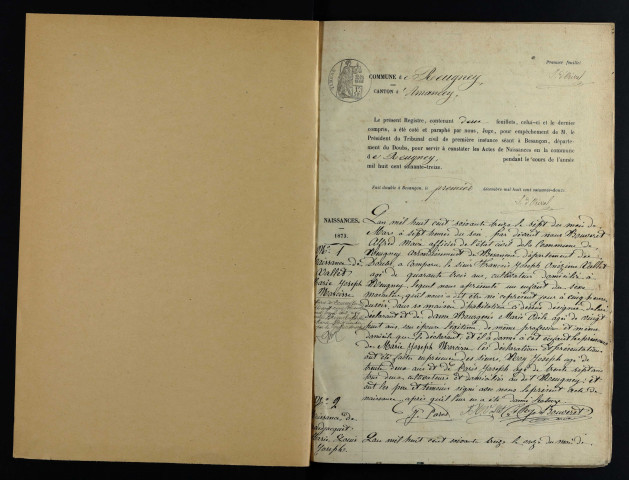 Premier feuillet
COMMUNE de Reugney
CANTON d'Amancey
Le présent Registre, contenant deux feuillets, celui-ci et le dernier
compris, a été coté et paraphé par nous, Juge, pour empêchement de M. le
Président du Tribunal civil de première instance séant à Besançon, départe-
ment du Doubs, pour servir à constater les Actes de Naissances en la commune
de Reugney, pendant le cours de l'année
mil huit cent soixante-treize.
Fait double à Besançon, le premier décembre mil huit cent soixante-douze.
NAISSANCES.
1873.
No. 1
Naissance de
Vallet
Marie Joseph
L'an mil huit cent soixante treize le sept du mois de
Mars à sept heures du soir par devant nous Bouveret
Alfred Maire officier de l'état civil de la Commune de
Reugney arrondissement de Besançon département du
Doubs, a comparu le sieur Francis Joseph Vallet
âgé de quarante trois ans, cultivateur domicilié à
Reugney, lequel nous a présenté un enfant du sexe
masculin, qu'il nous a dit être né ce présent jour à cinq heures
du soir, en sa maison d'habitation de lui
déclarant et de dame Bourgeois Marie âgée de vingt
huit ans, son épouse légitime de même profession et même
domicile que le déclarant, et il a donné à cet enfant les prénoms
de Marie Joseph les déclarations et présentations
ont été faites en présence des sieurs, Joseph âgé de
trente deux ans et de Paris Joseph âgé de trente sept ans
tous deux cultivateurs et domiciliés au dit Reugney; et
ont les père et témoins signé avec nous le présent acte de
naissance après qu'il leur en a été donné lecture
J. Paris Bouveret
No. 2
Naissance de
Marie Louis
Joseph
L'an mil huit cent soixante treize le onze du mois de